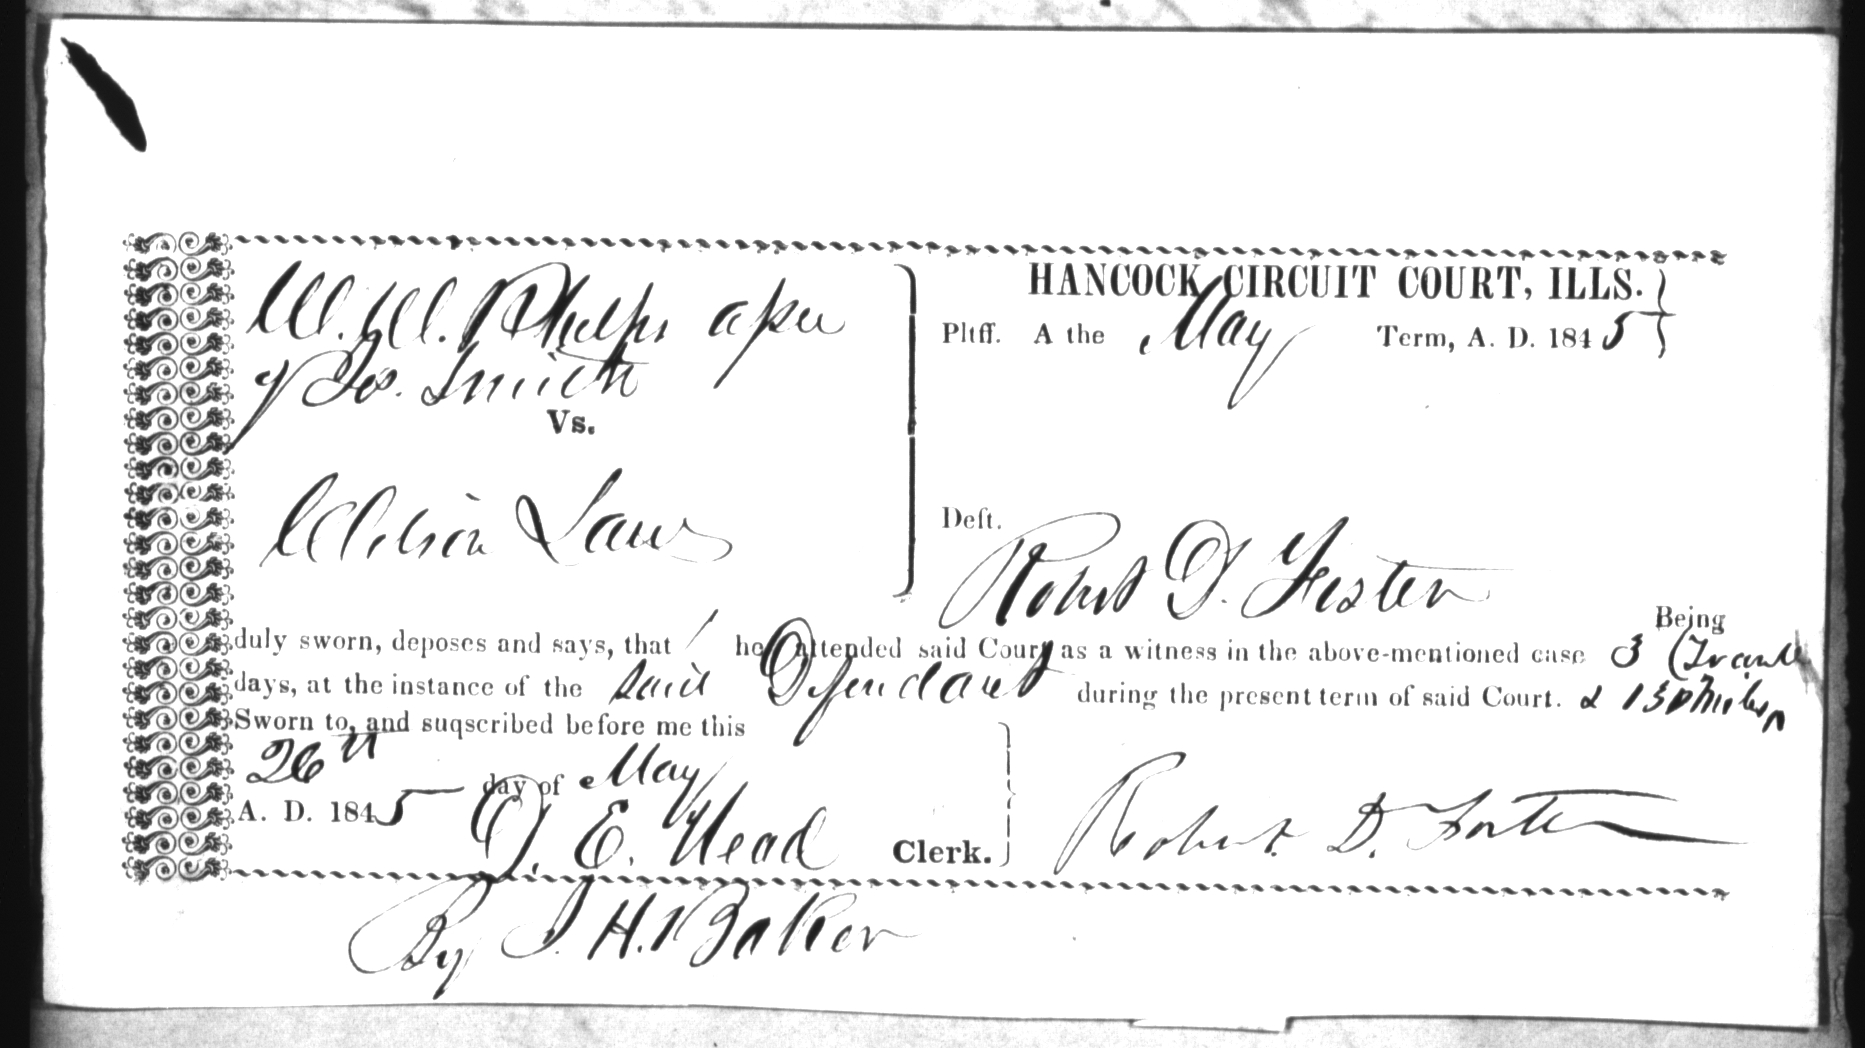 W. W. Phelps assee
of Jos. Smith
Vs.
Wilson Law
HANCOCK CIRCUIT COURT, ILLS.
Pltff. A the May Term, A. D. 1845
Deft.
Robert D. Foster
Being
duly sworn, deposes and says, that he attended said Court as a witness in the above-mentioned case 3
days, at the instance of the said Defendant during the present term of said Court. & 130 miles
Sworn to, and suqscribed before me this
26th day of May
A. D. 1845
D. E. Head Clerk.
Robert D. Foster
By J. H. Baker